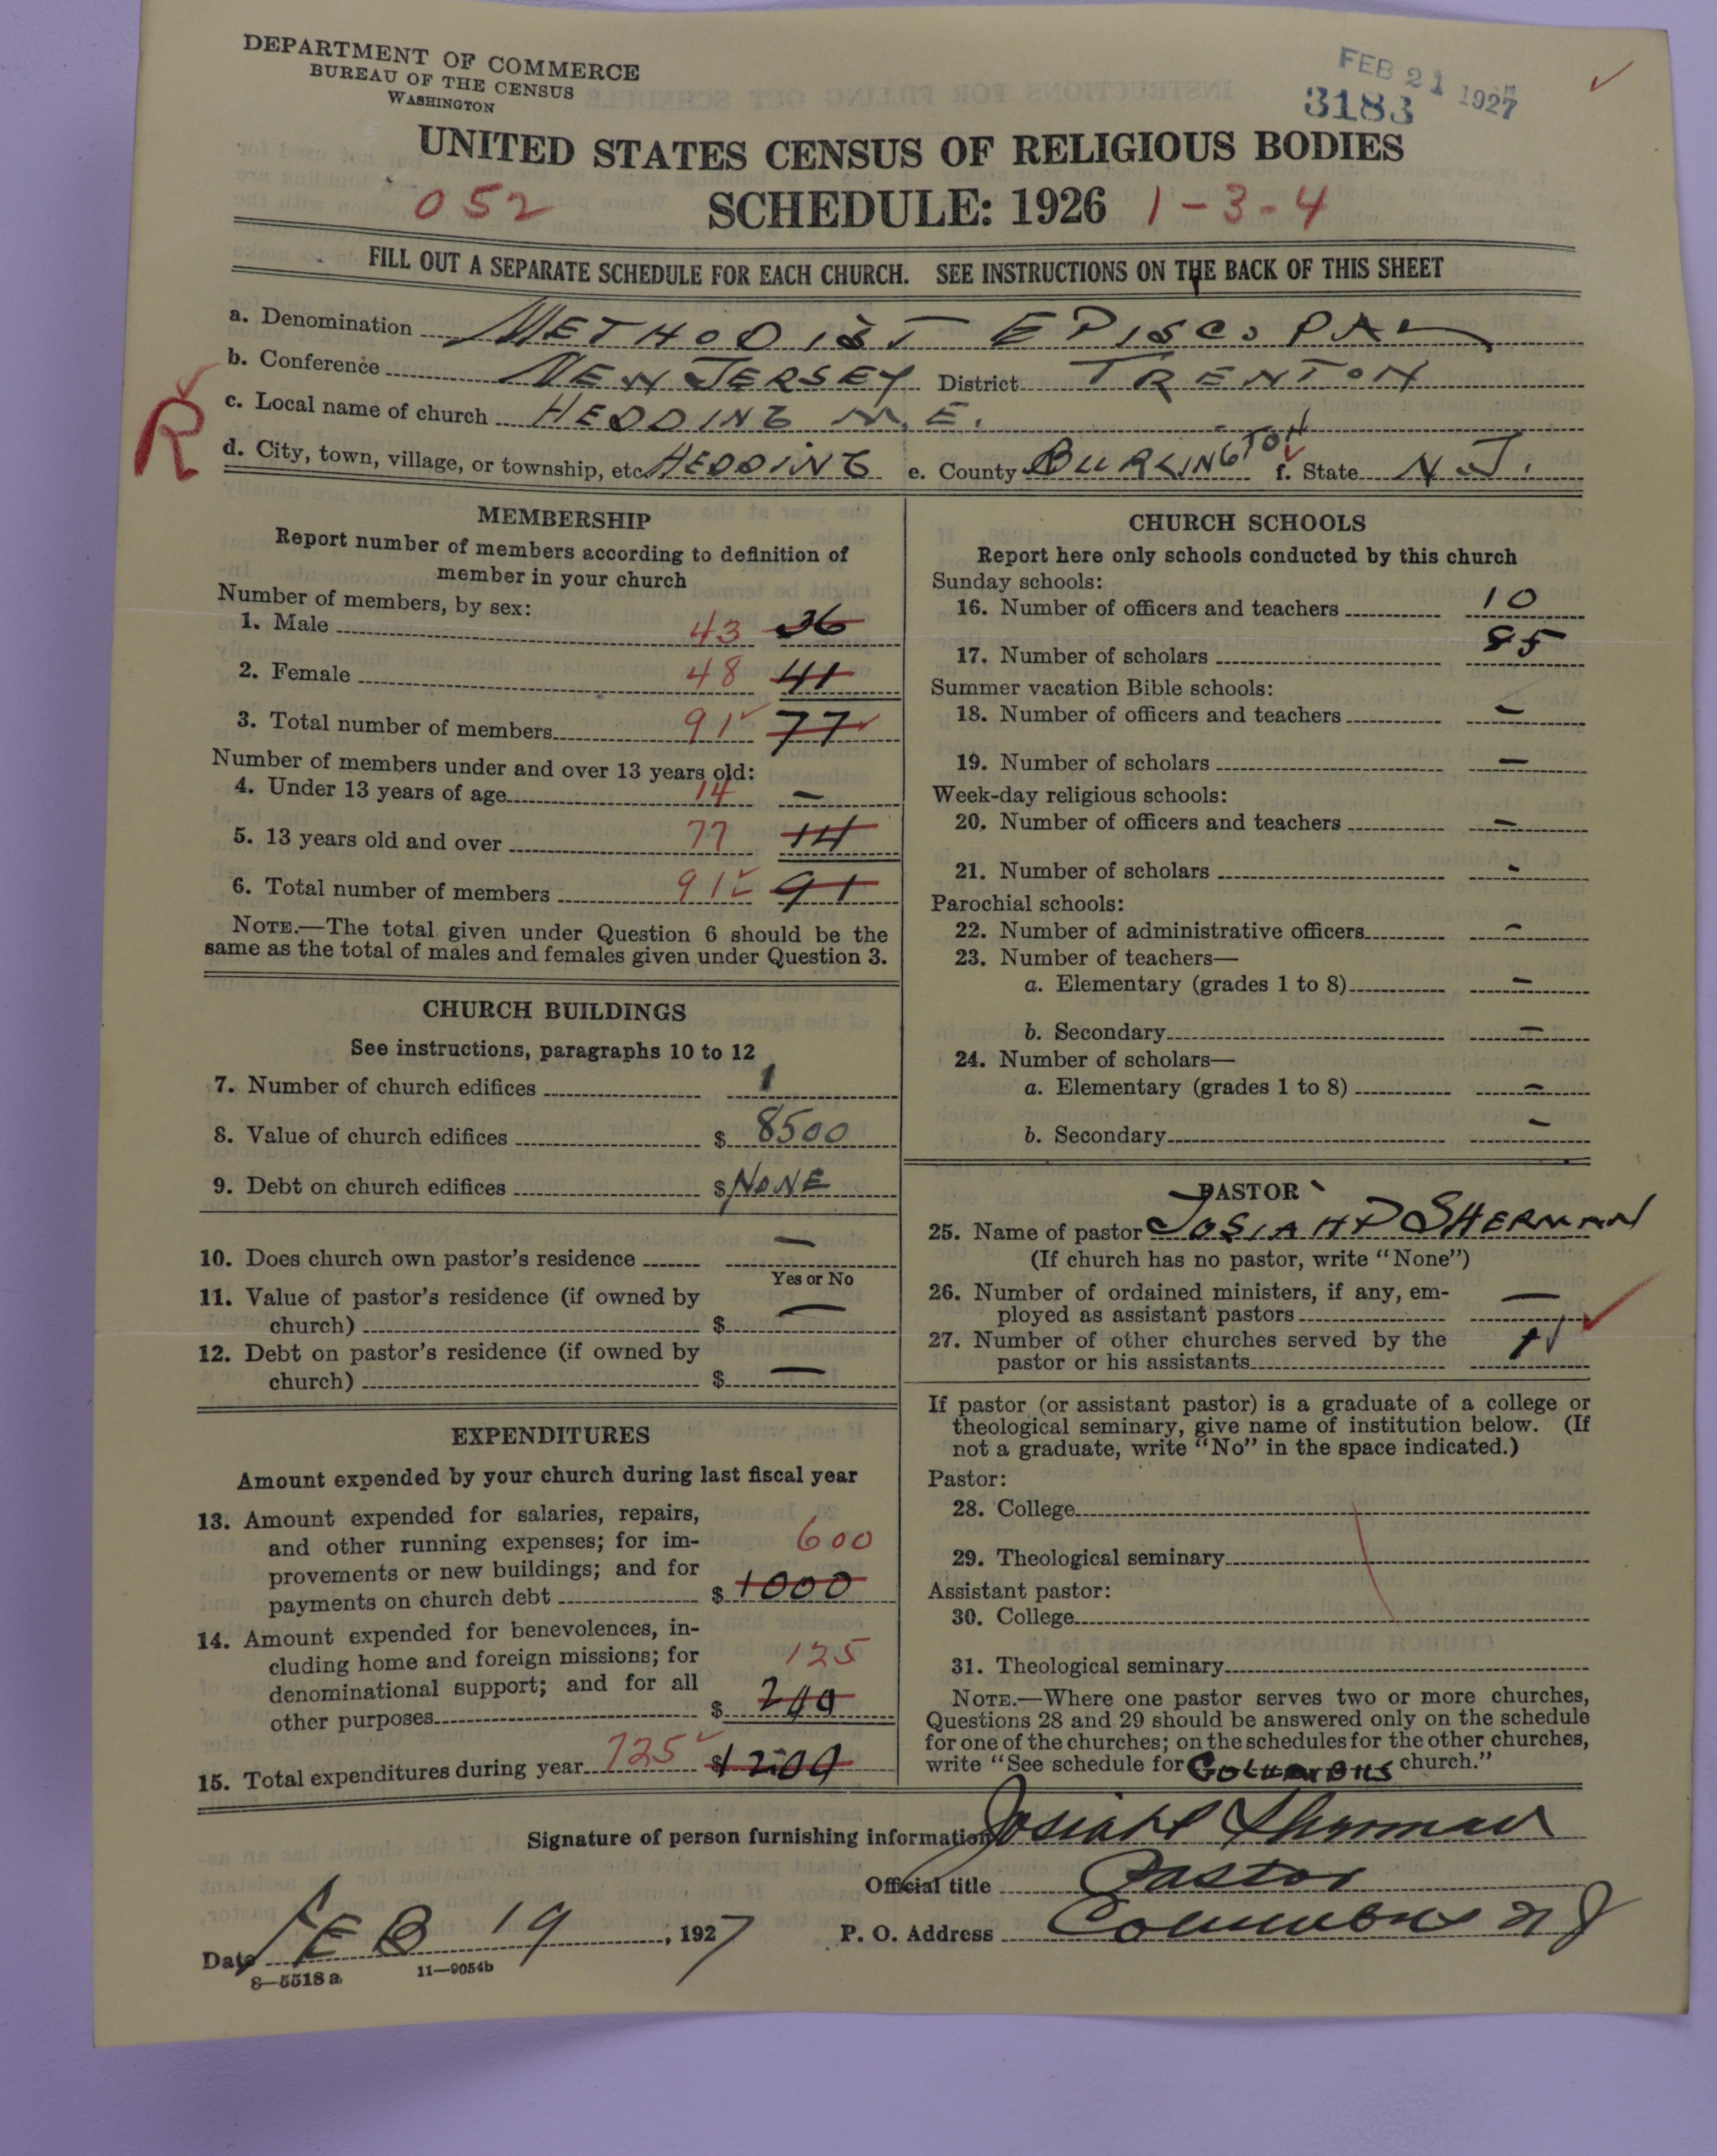 DEPARTMENT OF COMMERCE
BUREAU OF THE CENSUS
WASHINGTON
FEB 21 1927
3183
UNITED STATES CENSUS OF RELIGIOUS BODIES
052 SCHEDULE: 1926 1-3-4
FILL OUT A SEPARATE SCHEDULE FOR EACH CHURCH. SEE INSTRUCTIONS ON THE BACK OF THIS SHEET
a. Denomination METHODIST EPISCOPAL
b. Conference NEW JERSEY District TRENTON
R
c. Local name of church HEDDING M.E.
d. City, town, village, or township, etc. HEDDING e. County BURLINGTON f. State N.J.
MEMBERSHIP
Report number of members according to definition of
member in your church
Number of members, by sex:
1. Male 43 36
2. Female 48 41
3. Total number of members 91 77
Number of members under and over 13 years old:
4. Under 13 years of age 14 —
5. 13 years old and over 77 14
6. Total number of members 91 91
NOTE.—The total given under Question 6 should be the
same as the total of males and females given under Question 3.
CHURCH BUILDINGS
See instructions, paragraphs 10 to 12
7. Number of church edifices 1
8. Value of church edifices $ 8500
9. Debt on church edifices $ NONE
10. Does church own pastor's residence —
Yes or No
11. Value of pastor's residence (if owned by
church) $ —
12. Debt on pastor's residence (if owned by
church) $ —
EXPENDITURES
Amount expended by your church during last fiscal year
13. Amount expended for salaries, repairs,
and other running expenses; for im-
provements or new buildings; and for
payments on church debt $ 600 1000
14. Amount expended for benevolences, in-
cluding home and foreign missions; for
denominational support; and for all
other purposes $ 125 200
15. Total expenditures during year 725 $ 1200
CHURCH SCHOOLS
Report here only schools conducted by this church
Sunday schools:
16. Number of officers and teachers 10
17. Number of scholars 85
Summer vacation Bible schools:
18. Number of officers and teachers —
19. Number of scholars —
Week-day religious schools:
20. Number of officers and teachers —
21. Number of scholars -
Parochial schools:
22. Number of administrative officers -
23. Number of teachers—
a. Elementary (grades 1 to 8) —
b. Secondary —
24. Number of scholars—
a. Elementary (grades 1 to 8) —
b. Secondary —
PASTOR
25. Name of pastor JOSIAH P SHERMAN
(If church has no pastor, write "None")
26. Number of ordained ministers, if any, em-
ployed as assistant pastors —
27. Number of other churches served by the
pastor or his assistants 1
If pastor (or assistant pastor) is a graduate of a college or
theological seminary, give name of institution below. (If
not a graduate, write "No" in the space indicated.)
Pastor:
28. College
29. Theological seminary
Assistant pastor:
30. College
31. Theological seminary
NOTE.—Where one pastor serves two or more churches,
Questions 28 and 29 should be answered only on the schedule
for one of the churches; on the schedules for the other churches,
write "See schedule for COLUMBUS church."
Signature of person furnishing information Josiah P Sherman
Official title Pastor
Date FEB 19, 1927 P. O. Address Columbus N J
8—5518 a 11—9054b